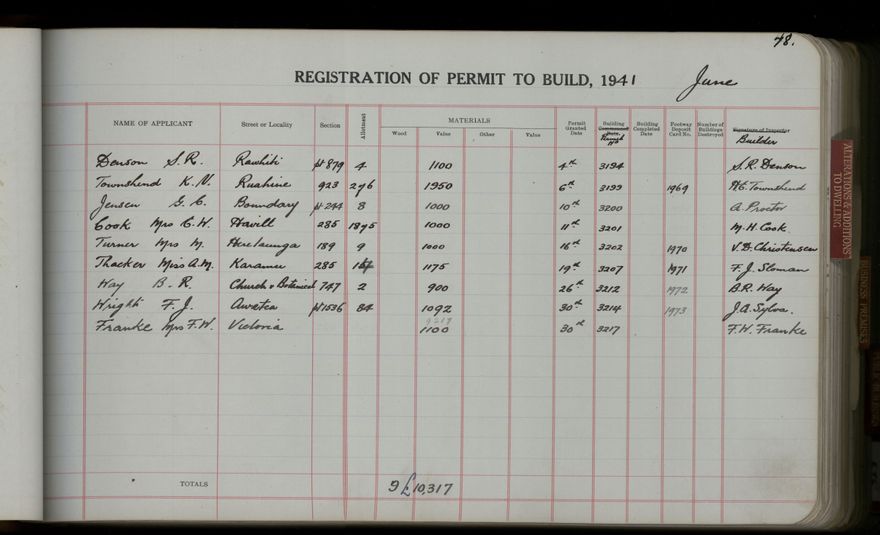 48.
REGISTRATION OF PERMIT TO BUILD, 1941 June
NAME OF APPLICANT Street or Locality Section Allotment MATERIALS Wood Value Other Value Permit Granted Date Building Commenced Date Permit No Building Completed Date Footway Deposit Card No. Number of Buildings Destroyed Signature of Inspector Builder
Denson S.R. Rawhiti pt 879 4 1100 4th 3194 S.R. Denson
Townshend K.N. Ruahine 923 2 & 6 1950 6th 3199 1969 H.E. Townshend
Jensen G.C. Boundary pt 244 8 1000 10th 3200 A. Proctor
Cook Mrs C.W. Havill 285 1000 11th 3201 M.H. Cook
Turner Mrs M. Heretaunga 189 9 1000 16th 3202 1970 V.B. Christensen
Thacker Miss A.M. Karamu 285 1175 19th 3207 1971 F.J. Sloman
Way B.R. Church & Botanical 747 2 900 26th 3212 1972 B.R. Way
Wright F.J. Awatea pt 1536 84 1092 30th 3214 1973 J.A. Sylva.
9217
Franke Mrs F.W. Victoria 1100 30th 3217 F.W. Franke
TOTALS 9 £10,317
ALTERATIONS & ADDITIONS TO DWELLING
BUSINESS PREMISES